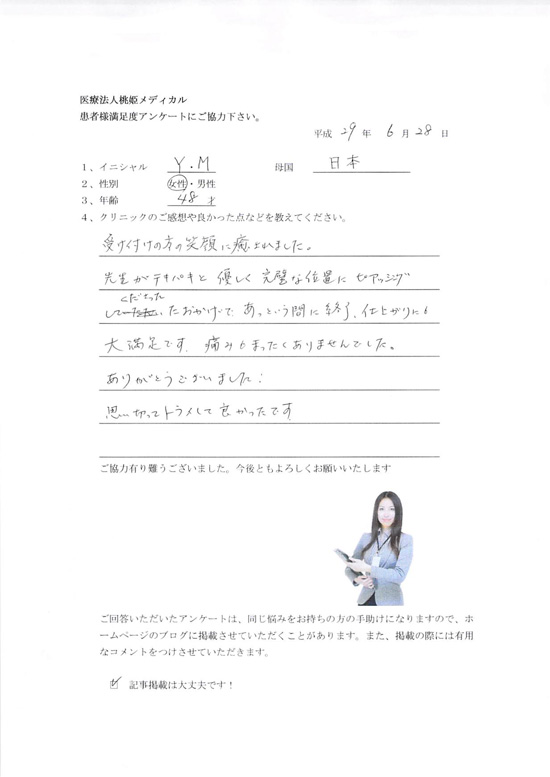 医療法人桃姫メディカル
患者様満足度アンケートにご協力下さい。
平成 29 年 6 月 28 日
1、イニシャル Y.M 母国 日本
2、性別 女性・男性
3、年齢 48才
4、クリニックのご感想や良かった点などを教えてください。
受け付けの方の笑顔に癒されました。
先生がテキパキと優しく完璧な位置にピアッシング
くださった
たおかげで、あっという間に終了、仕上がりにも
大満足です。痛みもまったくありませんでした。
ありがとうございました!
思い切ってトラメして良かったです
ご協力有り難うございました。今後ともよろしくお願いいたします
ご回答いただいたアンケートは、同じ悩みをお持ちの方の手助けになりますので、ホ
ームページのブログに掲載させていただくことがあります。また、掲載の際には有用
なコメントをつけさせていただきます。
☑ 記事掲載は大丈夫です!